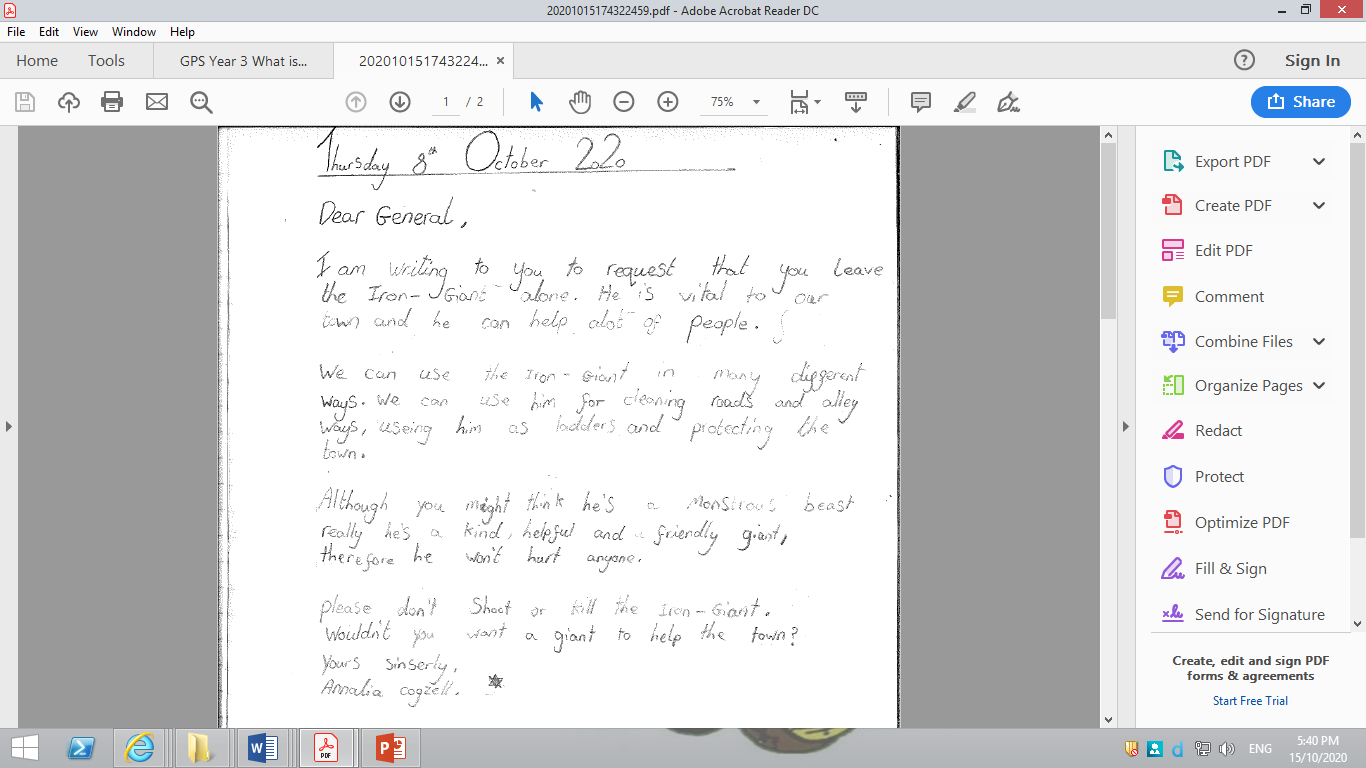 20201015174322459.pdf - Adobe Acrobat Reader DC
File Edit View Window Help
Home Tools GPS Year 3 What is... 202010151743224... × Sign In
1 / 2 75% Share
Thursday 8th October 2020
Dear General,
I am writing to you to request that you leave
the Iron-Giant alone. He is vital to our
town and he can help alot of people.
We can use the Iron-Giant in many different
ways. We can use him for cleaning roads and alley
ways, useing him as ladders and protecting the
town.
Although you might think he's a monstrous beast
really he's a kind, helpful and a friendly giant,
therefore he won't hurt anyone.
please don't Shoot or kill the Iron-Giant.
Wouldn't you want a giant to help the town?
Yours sinserly,
Annalia
Export PDF
Create PDF
Edit PDF
Comment
Combine Files
Organize Pages
Redact
Protect
Optimize PDF
Fill & Sign
Send for Signature
Create, edit and sign PDF
forms & agreements
Start Free Trial
ENG
5:40 PM
15/10/2020